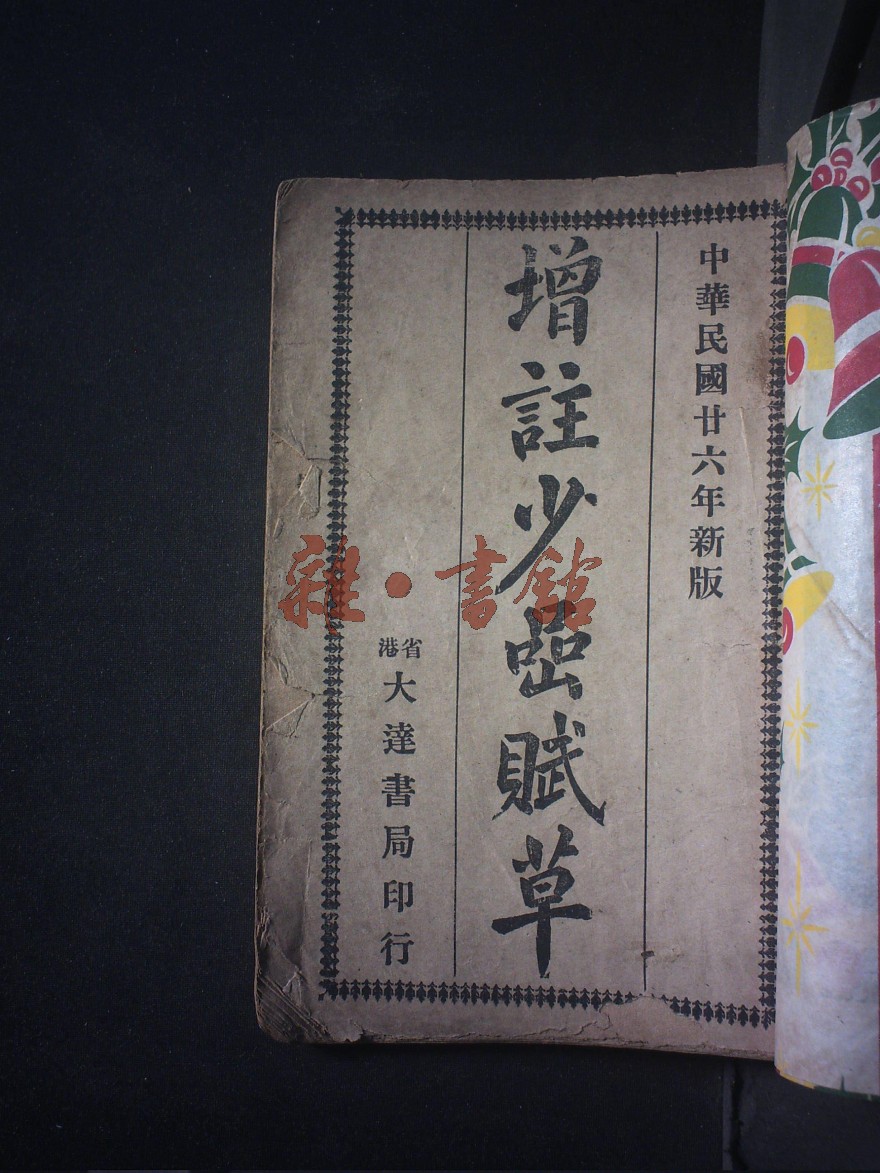 中華民國廿六年新版
增註少嵒賦草
省港
大達書局印行
雜·書館